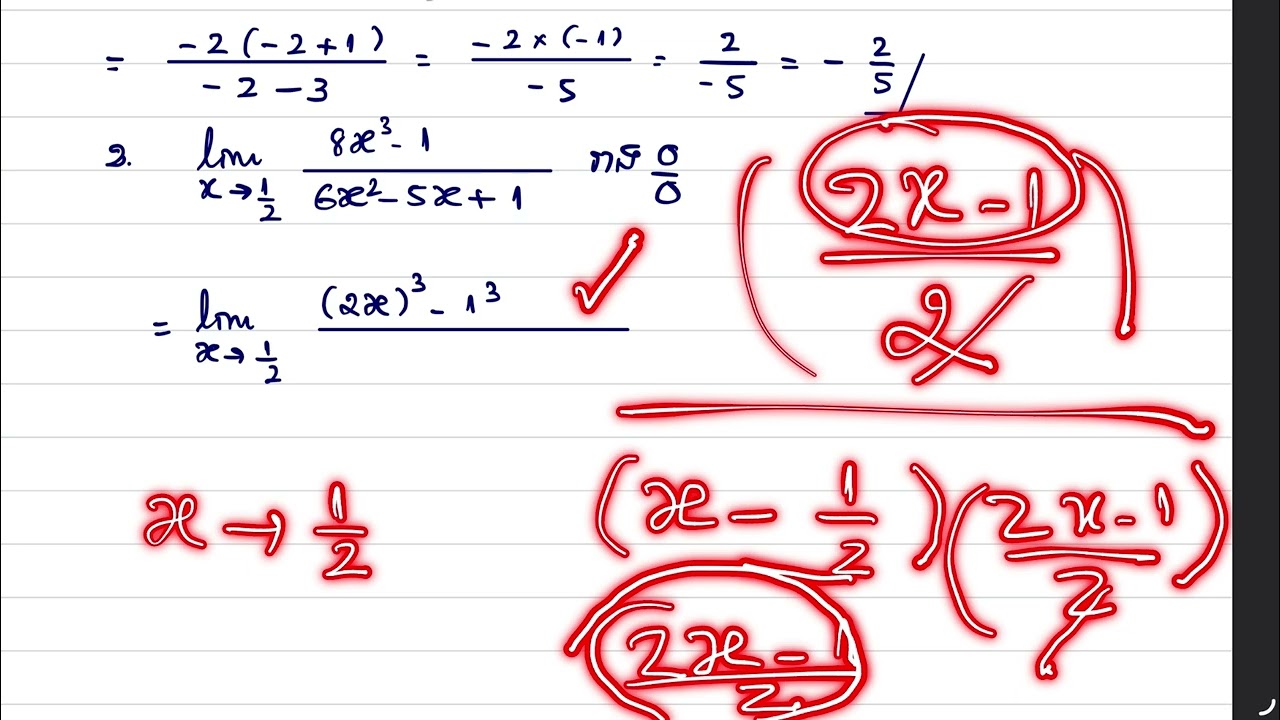 = -2(-2+1)/-2-3 = -2×(-1)/-5 = 2/-5 = -2/5
2. lim x→1/2 8x³-1/6x²-5x+1 រាង 0/0
= lim x→1/2 (2x)³-1³ ✓
(2x-1/2)
x→1/2
(x-1/2)(2x-1/2)
(2x-1/2